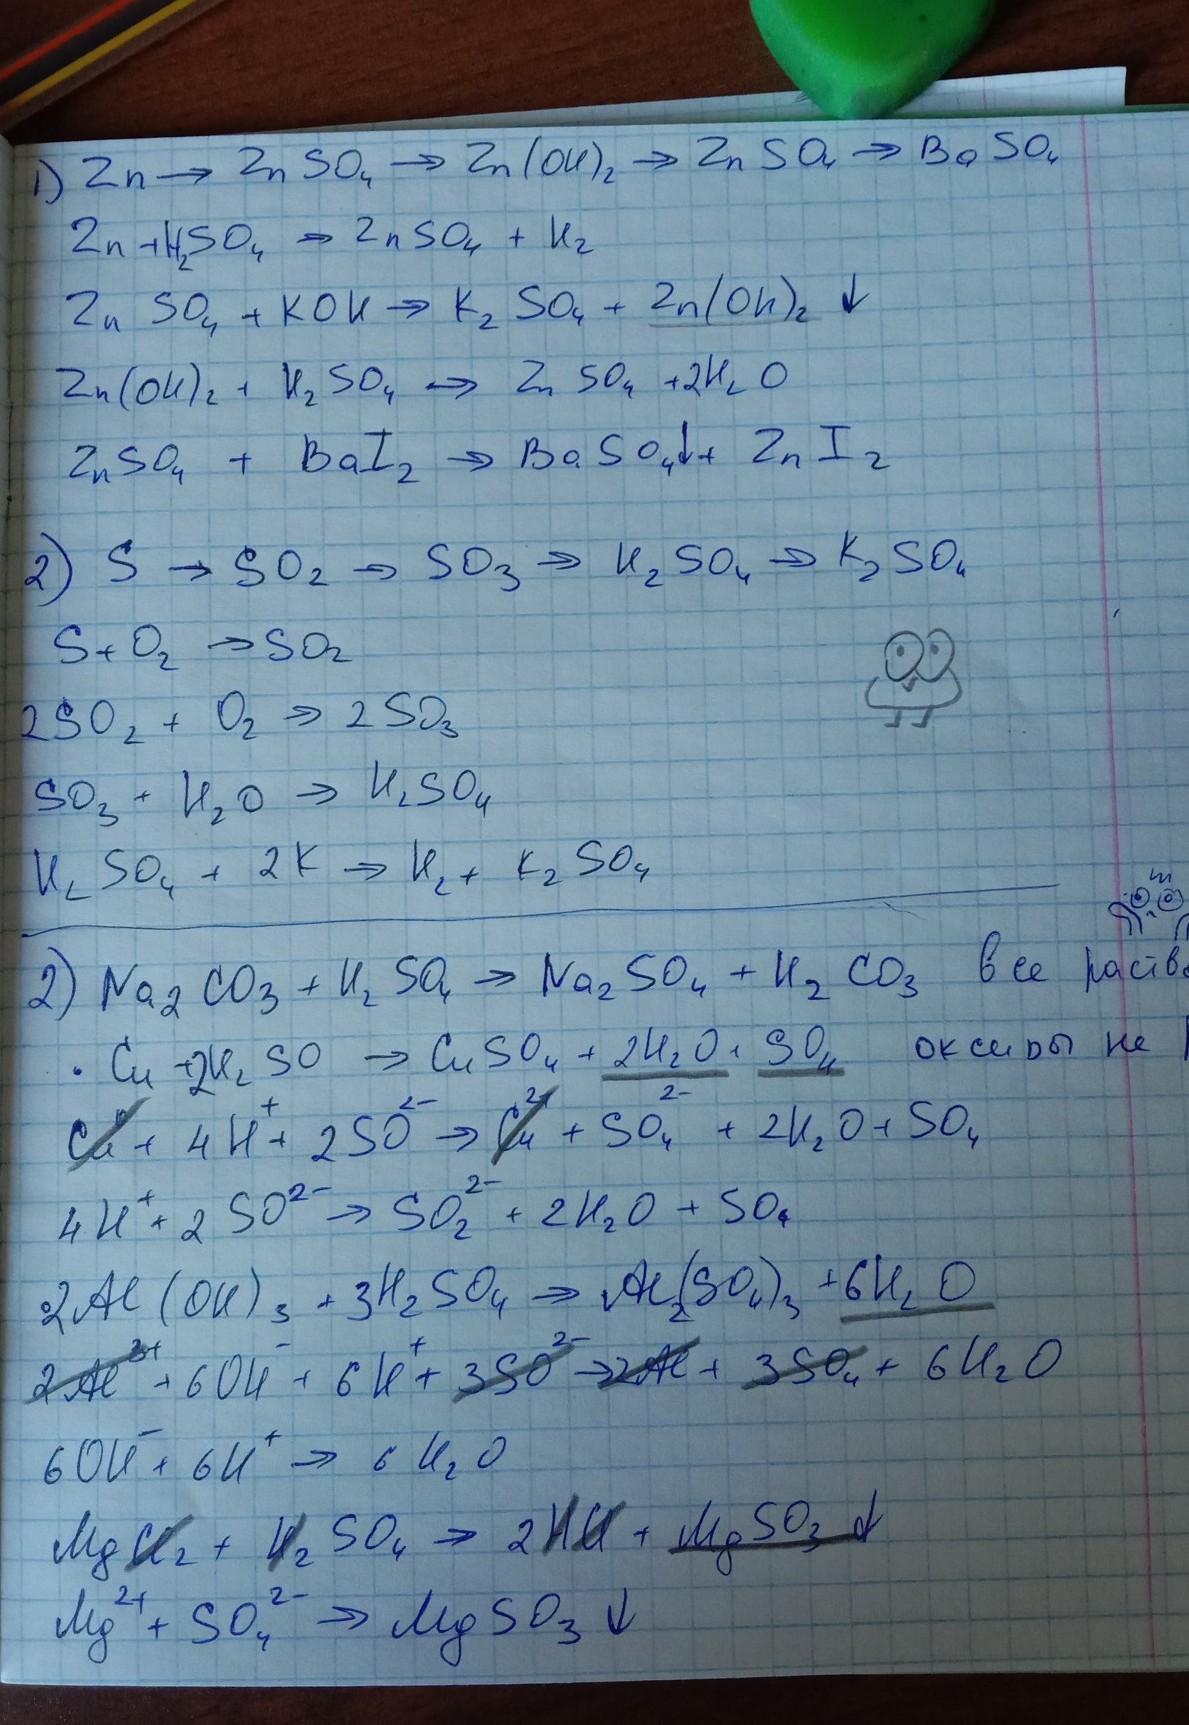 1) Zn → ZnSO₄ → Zn(OH)₂ → ZnSO₄ → BaSO₄
Zn + H₂SO₄ → ZnSO₄ + H₂
ZnSO₄ + KOH → K₂SO₄ + Zn(OH)₂ ↓
Zn(OH)₂ + H₂SO₄ → ZnSO₄ + 2H₂O
ZnSO₄ + BaI₂ → BaSO₄↓ + ZnI₂
2) S → SO₂ → SO₃ → H₂SO₄ → K₂SO₄
S + O₂ → SO₂
2SO₂ + O₂ → 2SO₃
SO₃ + H₂O → H₂SO₄
H₂SO₄ + 2K → H₂ + K₂SO₄
2) Na₂CO₃ + H₂SO₄ → Na₂SO₄ + H₂CO₃ все раств
· Cu + 2H₂SO → CuSO₄ + 2H₂O + SO₄ оксиды не
Cu + 4H⁺ + 2SO²⁻ → Cu²⁺ + SO₄²⁻ + 2H₂O + SO₄
4H⁺ + 2SO²⁻ → SO₂²⁻ + 2H₂O + SO₄
2Al(OH)₃ + 3H₂SO₄ → Al₂(SO₄)₃ + 6H₂O
2Al³⁺ + 6OH⁻ + 6H⁺ + 3SO²⁻ → 2Al + 3SO₄ + 6H₂O
6OH⁻ + 6H⁺ → 6H₂O
MgCl₂ + H₂SO₄ → 2HCl + MgSO₃ ↓
Mg²⁺ + SO₄²⁻ → MgSO₃ ↓